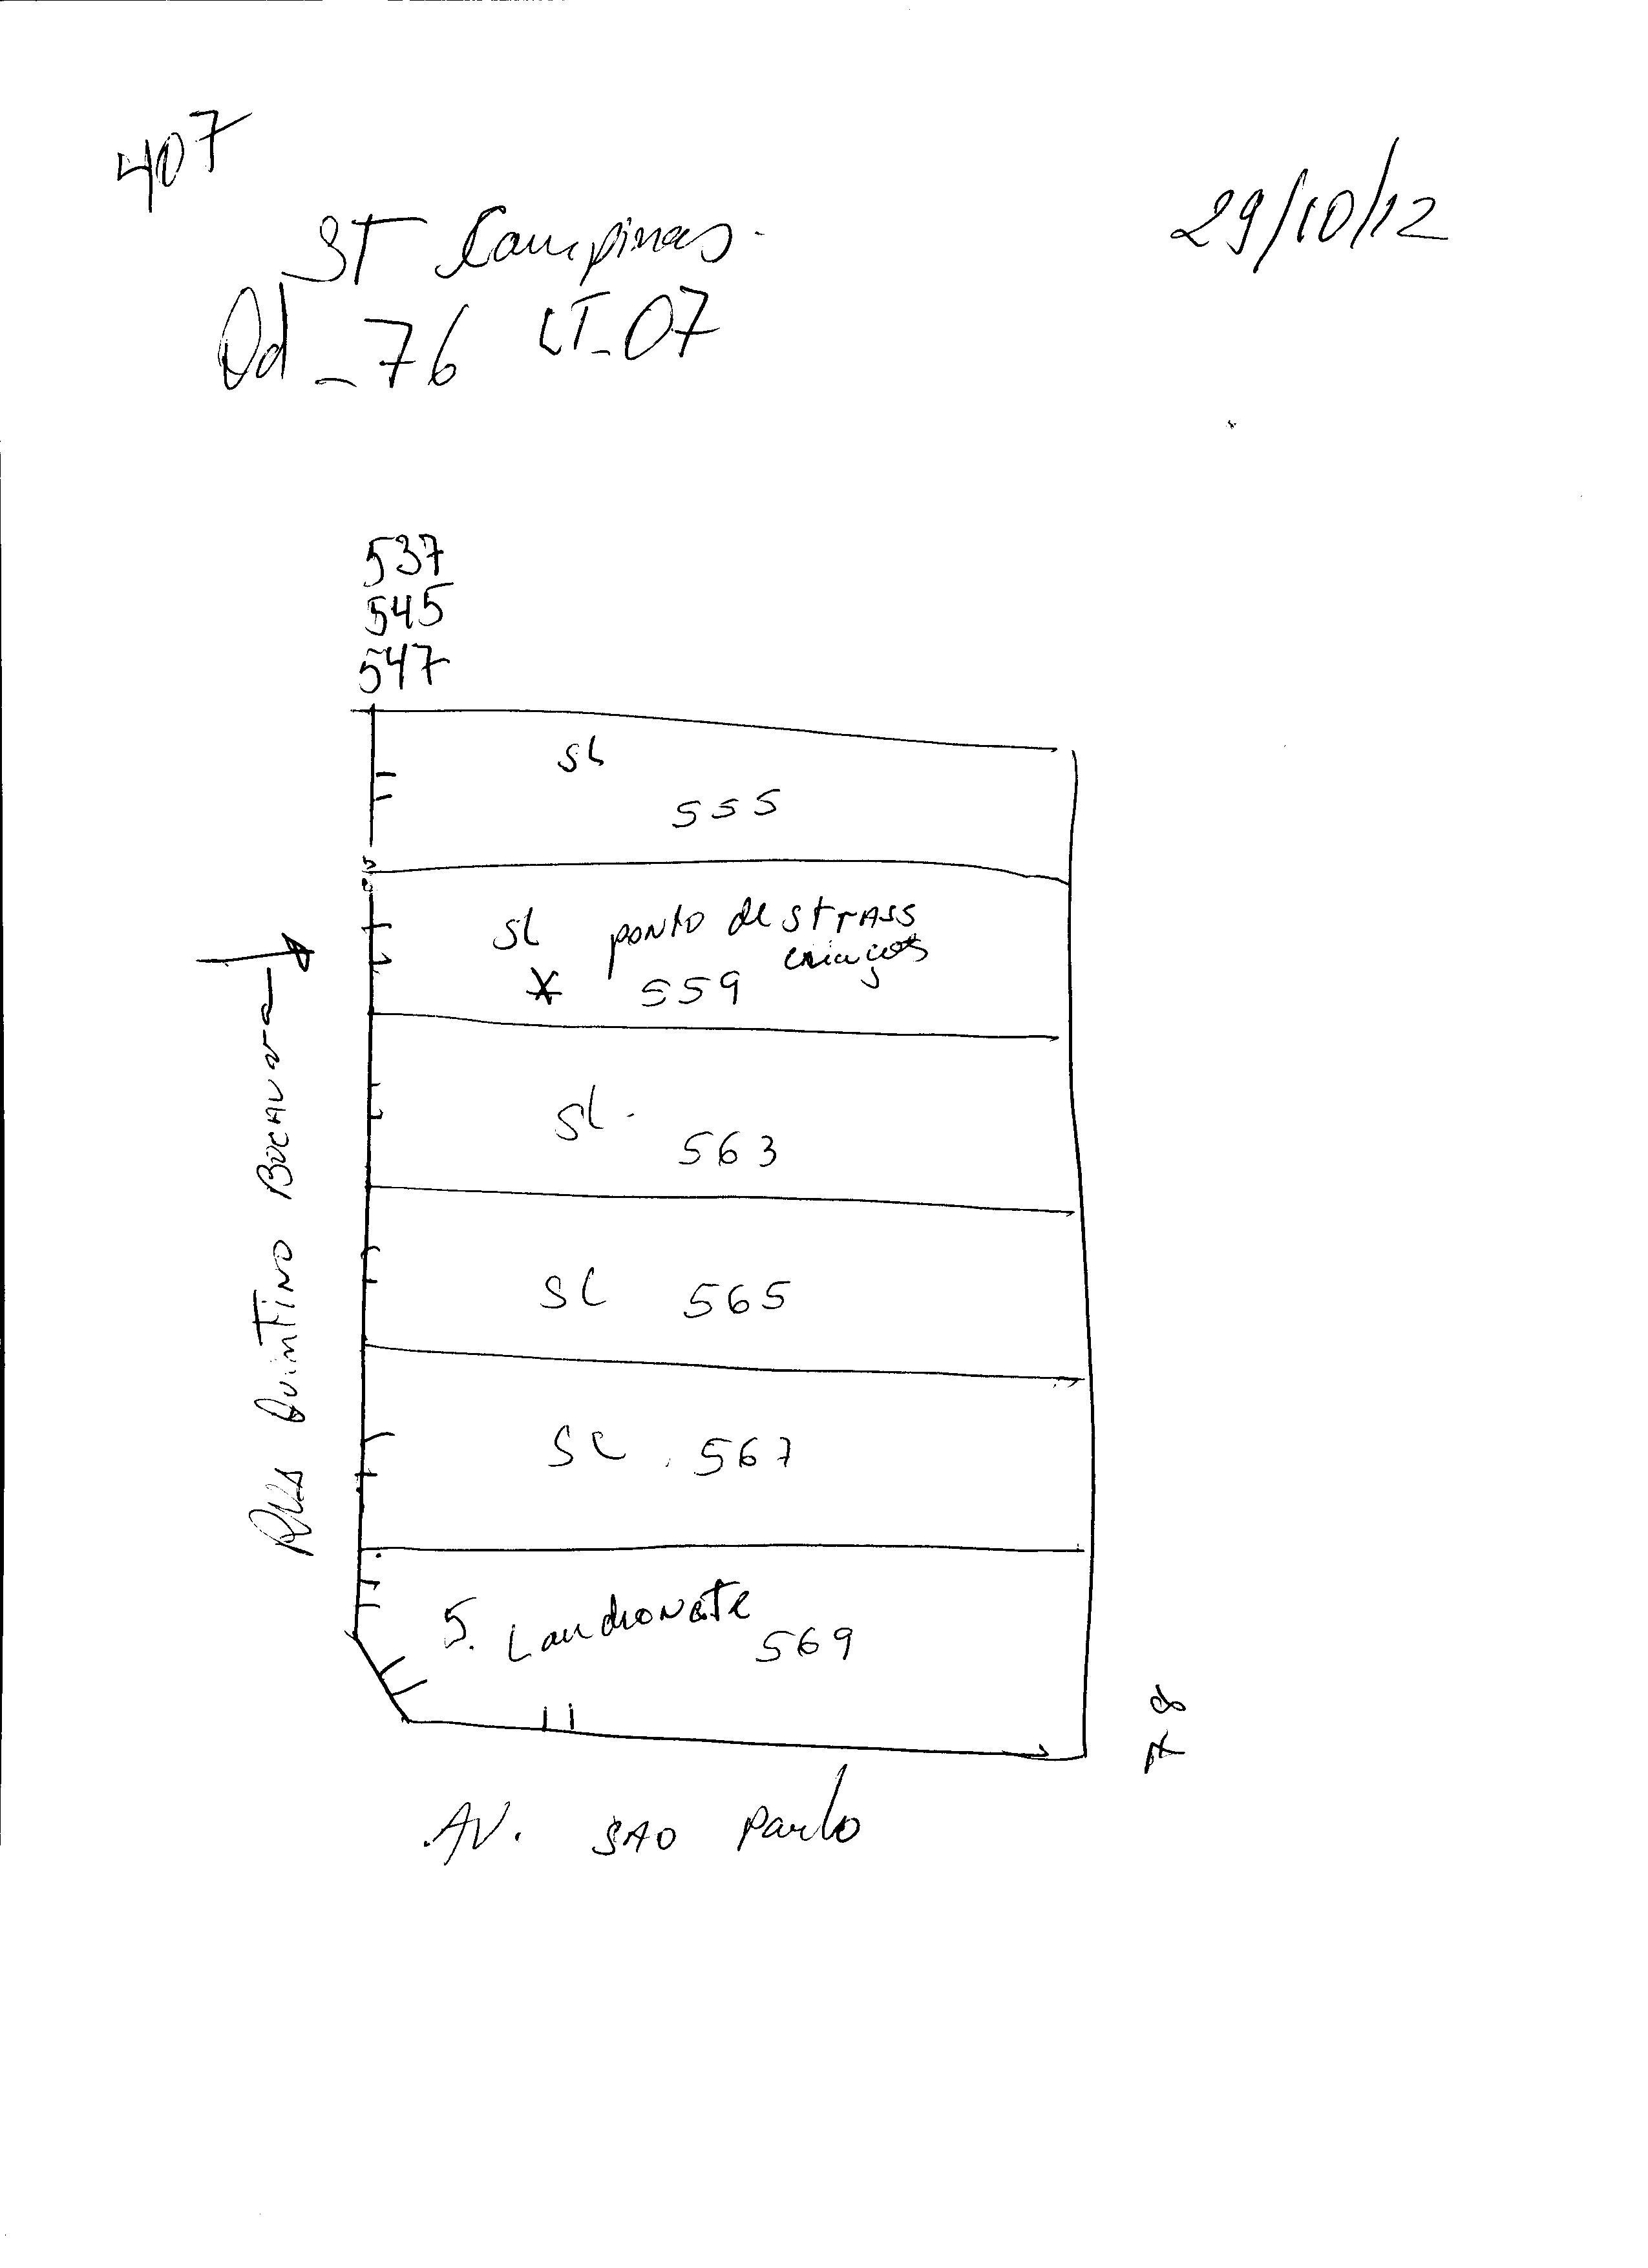 407
29/10/12
ST Campinas.
Qd - 76 LT-07
537
545
547
SL
555
SL ponto de STRASS
criações
* 559
SL
563
SL 565
SL 567
S. Lanchonete
569
RUA QUINTINO BOCAIUVA
AV. SAO Paulo